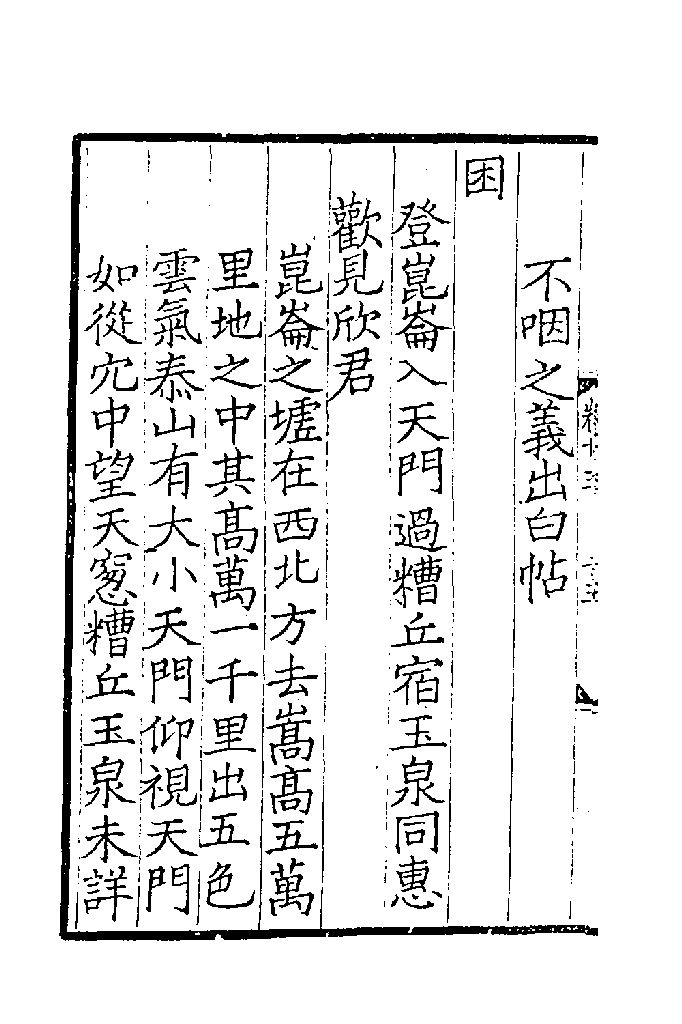 不咽之義出白帖
困
登崑崙入天門過糟丘宿玉泉同惠
歡見欣君
崑崙之墟在西北方去嵩高五萬
里地之中其高萬一千里出五色
雲氣泰山有大小天門仰視天門
如從穴中望天窓糟丘玉泉未詳